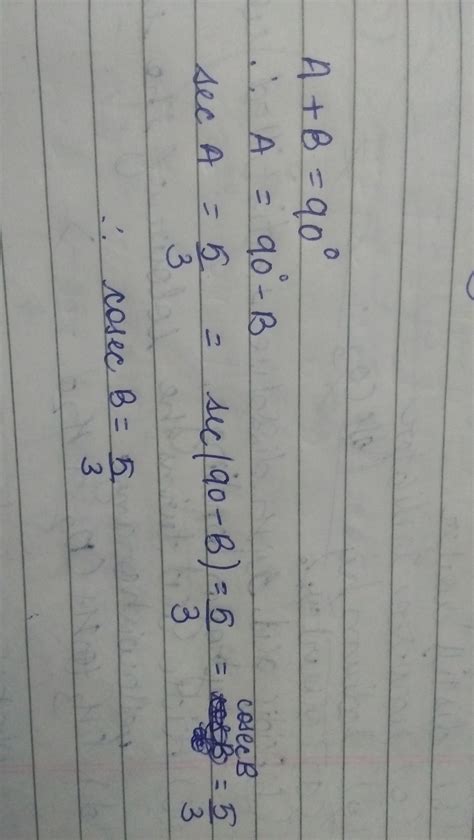 A + B = 90°
∴ A = 90° - B
sec A = 5/3 = sec(90 - B) = 5/3 = cosec B = 5/3
∴ cosec B = 5/3